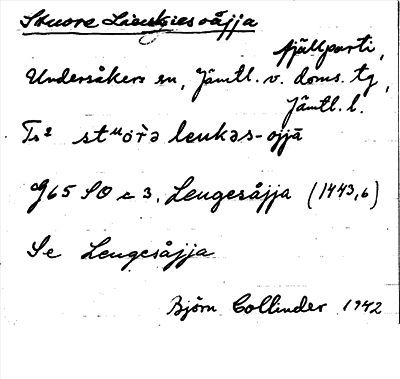 Stuore Lieukiesoåjja
fjällparti,
Undersåkers sn, Jämtl. v. doms. tg,
Jämtl. l.
Ts² stᵘor̀ə leukas-ojjā
G65 SO c 3, Leugesåjja (1443,6)
Se Leugesåjja
Björn Collinder 1942